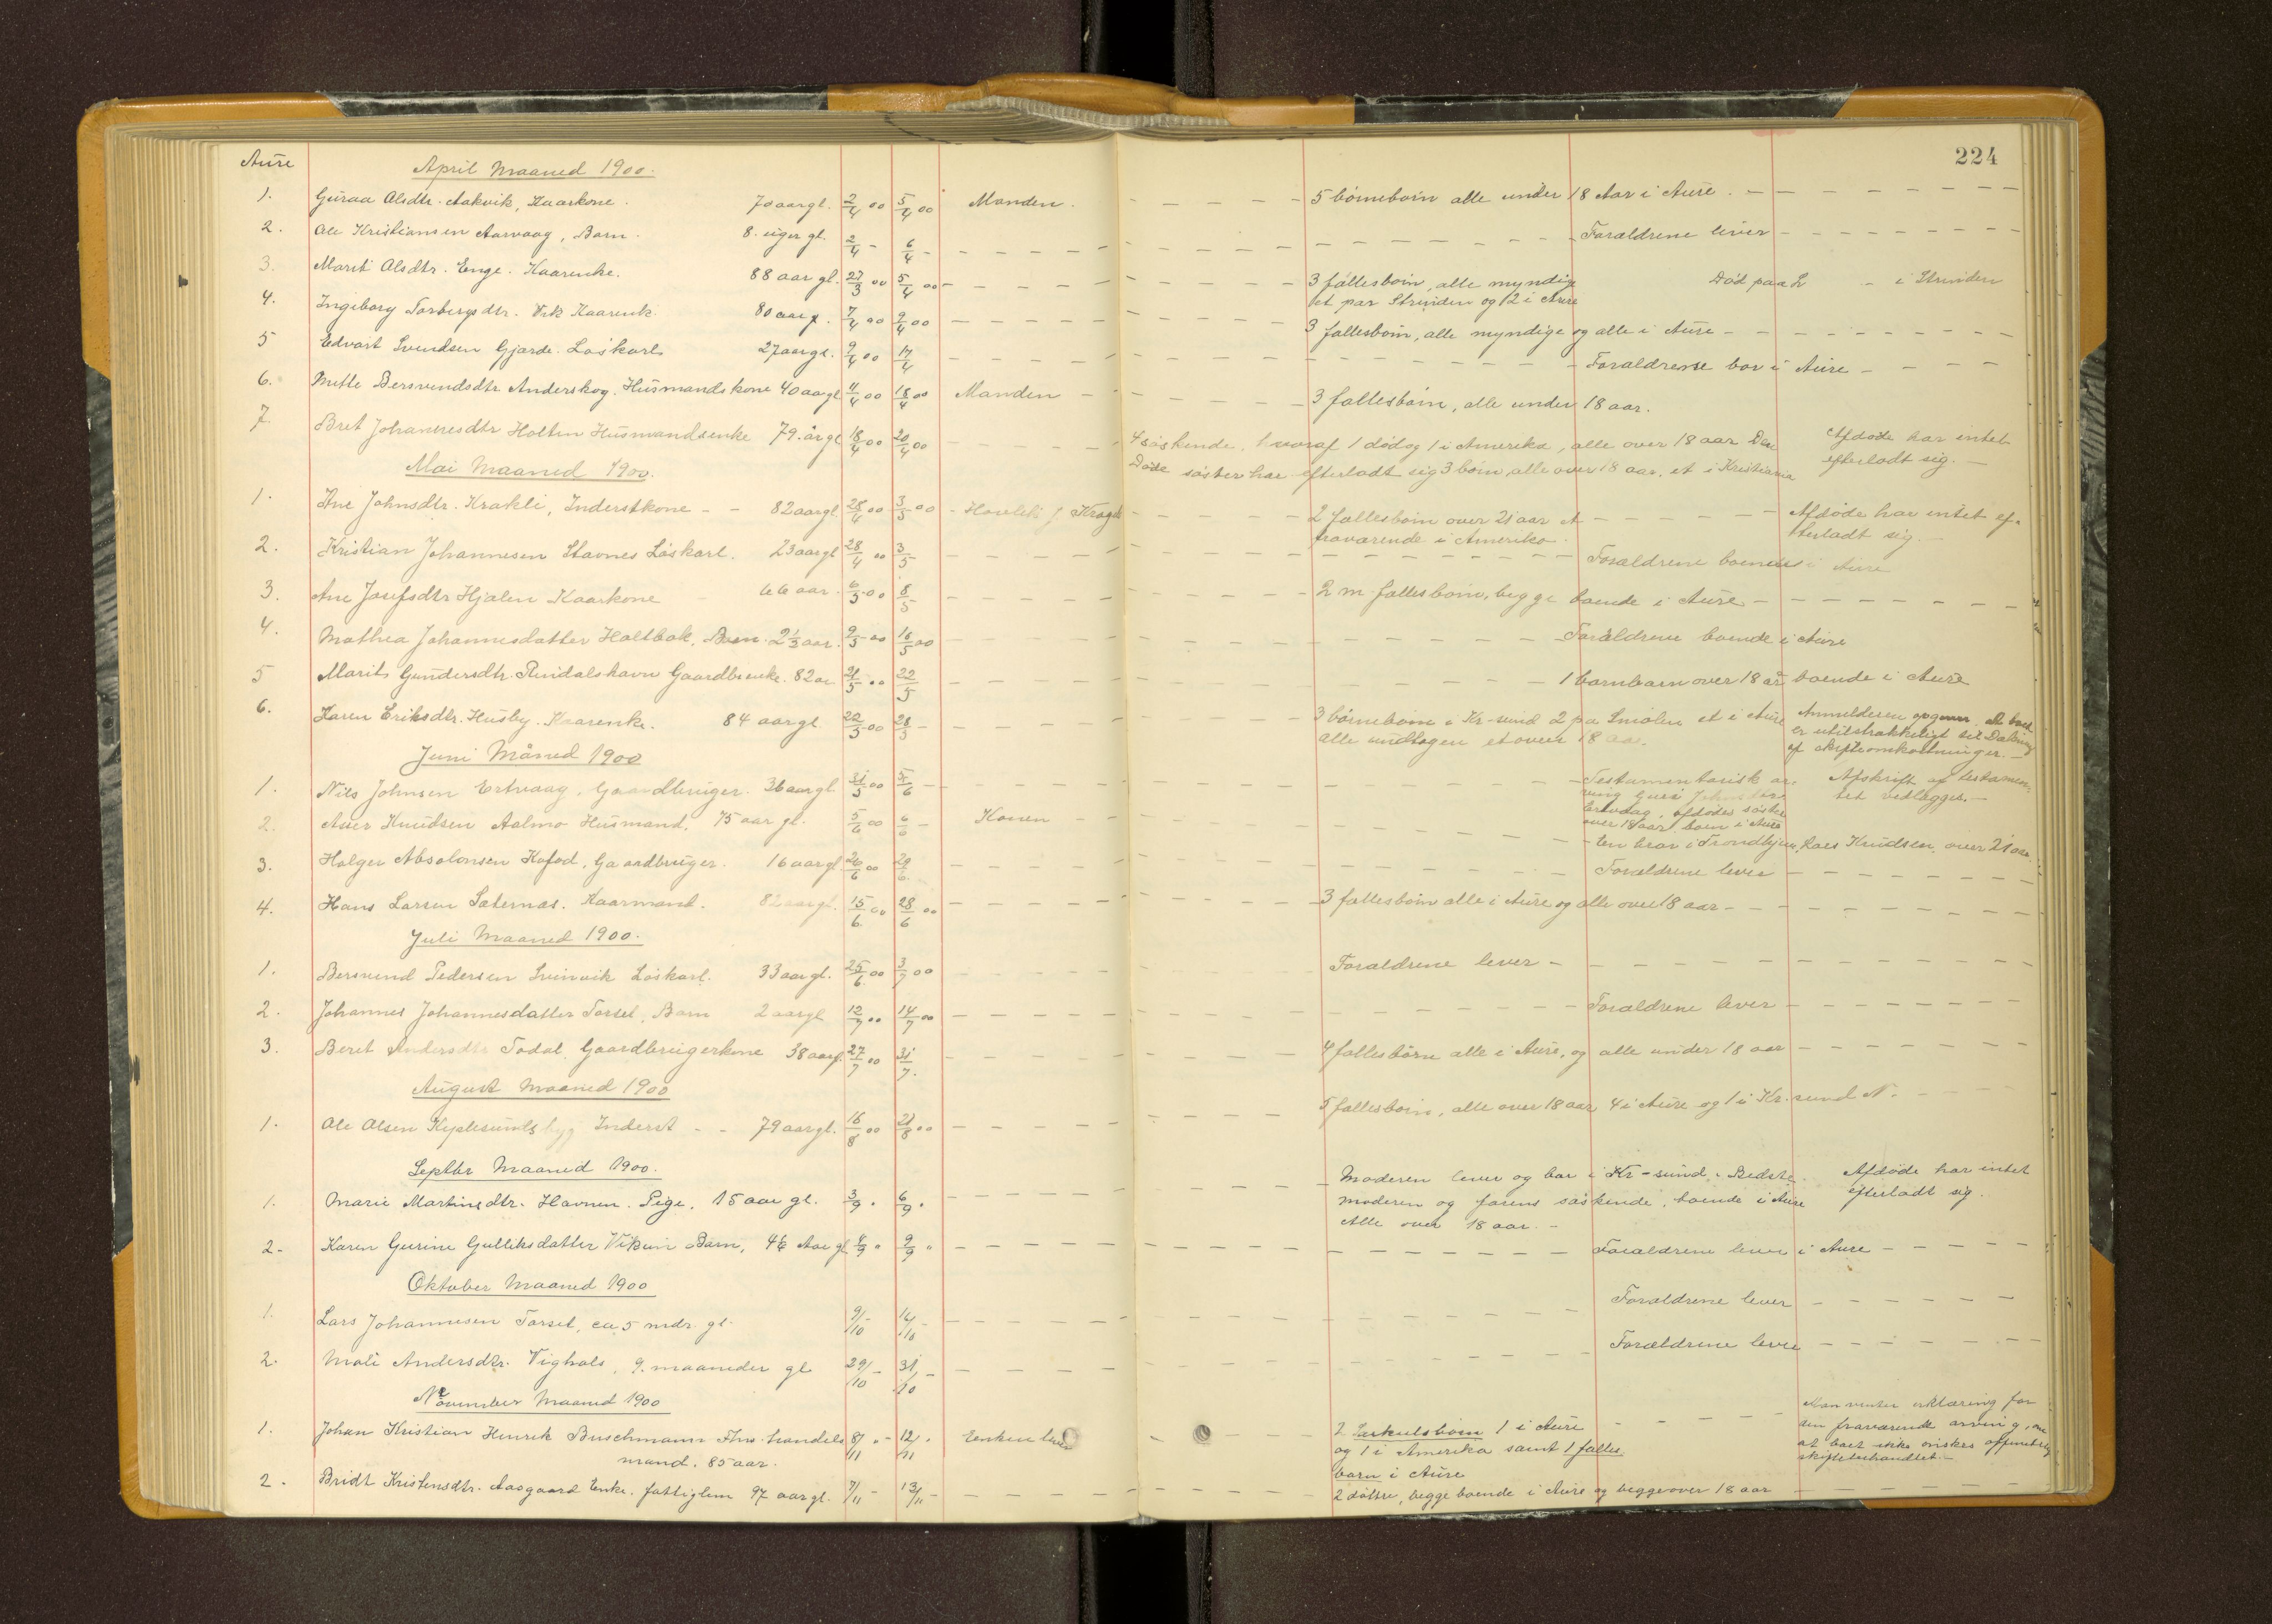 224
Aure
April Maaned 1900.
1. Guraa Olsdtr. Aakvik, Kaarkone. 70 aar gl. 2/4 00 5/4 00 Manden. 5 børnebørn alle under 18 Aar i Aure.
2. Ole Kristiansen Aarvaag, Barn. 8. uger gl. 2/4 - 6/4 - Forældrene lever
3. Marit Olsdtr. Enge. Kaarenke. 88 aar gl. 27/3 00 5/4 00 3 fællesbørn, alle myndige Død paa i Strinden
et par Strinden og 2 i Aure
4. Ingeborg Torbergsdtr. Vik Kaarenk. 80 aar g. 7/4 00 9/4 00 3 fællesbørn, alle myndige og alle i Aure
5 Edvart Svendsen Gjærde. Løskarl. 27 aar gl. 9/4 00 17/4 Forældrene bor i Aure
6. Mette Bersvendsdtr Anderskog. Husmandskone 40 aar gl 11/4 00 18/4 00 Manden 3 fællesbørn, alle under 18 aar.
7. Bret Johannesdtr Holten Husmandsenke 79. år gl 18/4 00 20/4 00 4 søskende, hvoraf 1 død og 1 i Amerika, alle over 18 aar Den Afdøde har intet
Døde søster har efterladt sig 3 børn, alle over 18 aar, et i Kristiania efterladt sig.
Mai Maaned 1900.
1. Ane Johnsdtr. Krakli, Inderstkone 82 aar gl. 28/4 00 3/5 00 2 fællesbørn over 21 aar et Afdøde har intet ef-
fraværende i Amerika. terladt sig.
2. Kristian Johannesen Stavnes Løskarl. 23 aar gl 28/4 00 3/5 Forældrene boende i Aure
3. Ane Josefsdtr Hjalen Kaarkone 66 aar. 6/5 00 8/5 2 m. fællesbørn, begge boende i Aure
4. Mathea Johannesdatter Holtbak. Barn. 2 1/3 aar. 9/5 00 16/5 00 Forældrene boende i Aure
5 Marit Gundersdtr. Rindalshavn Gaardbr.enke. 82 aar 21/5 00 22/5 1 barnebarn over 18 år boende i Aure
6. Karen Eriksdtr. Husby. Kaarenke. 84 aar gl. 22/5 00 28/5 3 børnebørn i Kr-sund 2 på Smølen et i Aure Anmelderen opgiver at boet
alle undtagen et over 18 aar. er utilstrækkeligt til Dækning
af skifteomkostninger.
Juni Måned 1900
1. Nils Johnsen Ertvaag, Gaardbruger. 36 aar gl 31/5 00 5/6 Testamentarisk ar- Afskrift af testamen-
ving Guri Johnsdtr tet vedlægges.
Ertvaag, afdødes søster
over 18 aar, boen i Aure
2. Knudsen Aalmo Husmand. 75 aar gl. 5/6 00 6/6 Konen En bror i Trondhjem, Lars Knudsen, over 21 aar.
3. Holger Absolonsen Kofod, Gaardbruger. 16 aar gl 26/6 00 28/6 Forældrene lever
4. Hans Larsen Sæternæs. Kaarmand. 82 aar gl. 15/6 00 28/6 00 3 fællesbørn alle i Aure og alle over 18 aar
Juli Maaned 1900.
1. Bersvend Pedersen Svinvik Løskarl. 33 aar gl. 25/6 00 3/7 00 Forældrene lever
2. Johannes Johannesdatter Torset, Barn 2 aar gl 12/7 00 14/7 00 Forældrene lever
3. Beret Andersdtr Todal, Gaardbrugerkone 38 aar g. 27/7 00 31/7. 4 fællesbørn alle i Aure, og alle under 18 aar
August Maaned 1900
1. Ole Olsen Inderst 79 aar gl. 16/8 00 21/8 00 5 fællesbørn, alle over 18 aar, 4 i Aure og 1 i Kr. sund N.
Septbr Maaned 1900.
1. Marie Martinsdtr. Havnen. Pige. 15 aar gl. 3/9 6/9 Moderen lever og bor i Kr-sund. Bedste- Afdøde har intet
moderen og farens søskende, boende i Aure efterladt sig.
Alle over 18 aar.
2- Karen Gurine Gulliksdatter Barn, Aar gl 9/9 Forældrene lever i Aure
Oktober Maaned 1900
1. Lars Johannesen Torset, ca 5 mdr. gl. 9/10 16/10 Forældrene lever
2. Mali Andersdtr. Vighals, 9. maaneder gl 29/10 31/10 Forældrene leve
November Maaned 1900
1. Johan Kristian Henrik Buschmann Fhv. handels 8/11 12/11 Enken lever 2 særkulsbørn 1 i Aure Man venter erklæring for
mand. 85 aar. og 1 i Amerika samt 1 fælles- den fraværende arving, om
barn i Aure at boet ikke ønskes offentlig
skiftebehandlet.
2. Bridt Kristensdtr. Aasgaard Enke. fattiglem 97 aar gl. 7/11 13/11 2 døttre, begge boende i Aure og begge over 18 aar